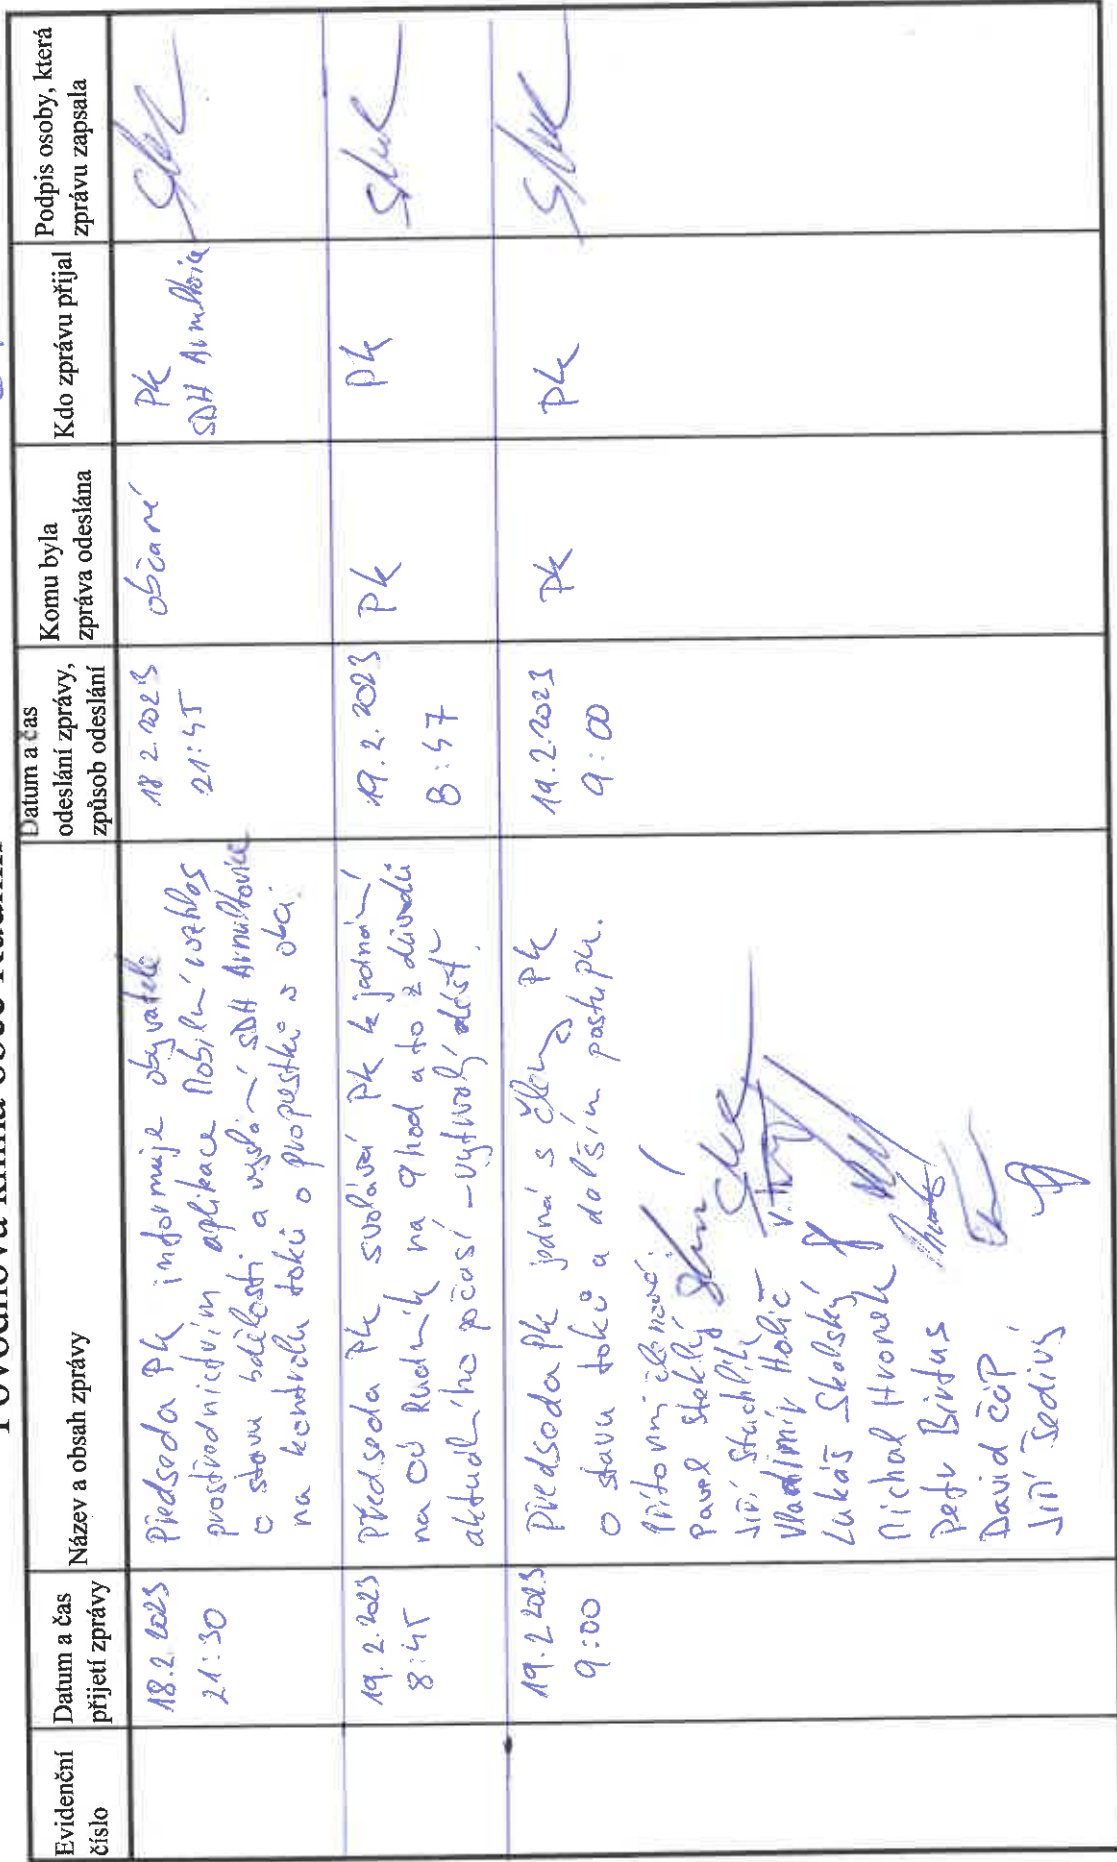 Povodňová kniha obce Rudník
Evidenční číslo
Datum a čas přijetí zprávy
Název a obsah zprávy
Datum a čas odeslání zprávy, způsob odeslání
Komu byla zpráva odeslána
Kdo zprávu přijal
Podpis osoby, která zprávu zapsala
18.2.2023
21:30
Předseda PK informuje obyvatele
prostřednictvím aplikace Mobilní rozhlas
o stavu bdělosti a vyslání SDH Arnultovice
na kontrolu toků a propustků v obci.
18.2.2023
21:45
občané
PK
SDH Arnultovice
19.2.2023
8:45
Předseda PK svolává PK k jednání
na OÚ Rudník na 9 hod a to z důvodů
aktuálního počasí - vytrvalý déšť.
19.2.2023
8:47
PK
PK
19.2.2023
9:00
Předseda PK jedná s členy PK
o stavu toků a dalším postupu.
Přítomní členové:
Pavel Steklý
Jiří
Vladimír Holič
Lukáš Skalský
Michal Hronek
Petr Birtus
David Čáp
Jiří Šedivý
19.2.2023
9:00
PK
PK